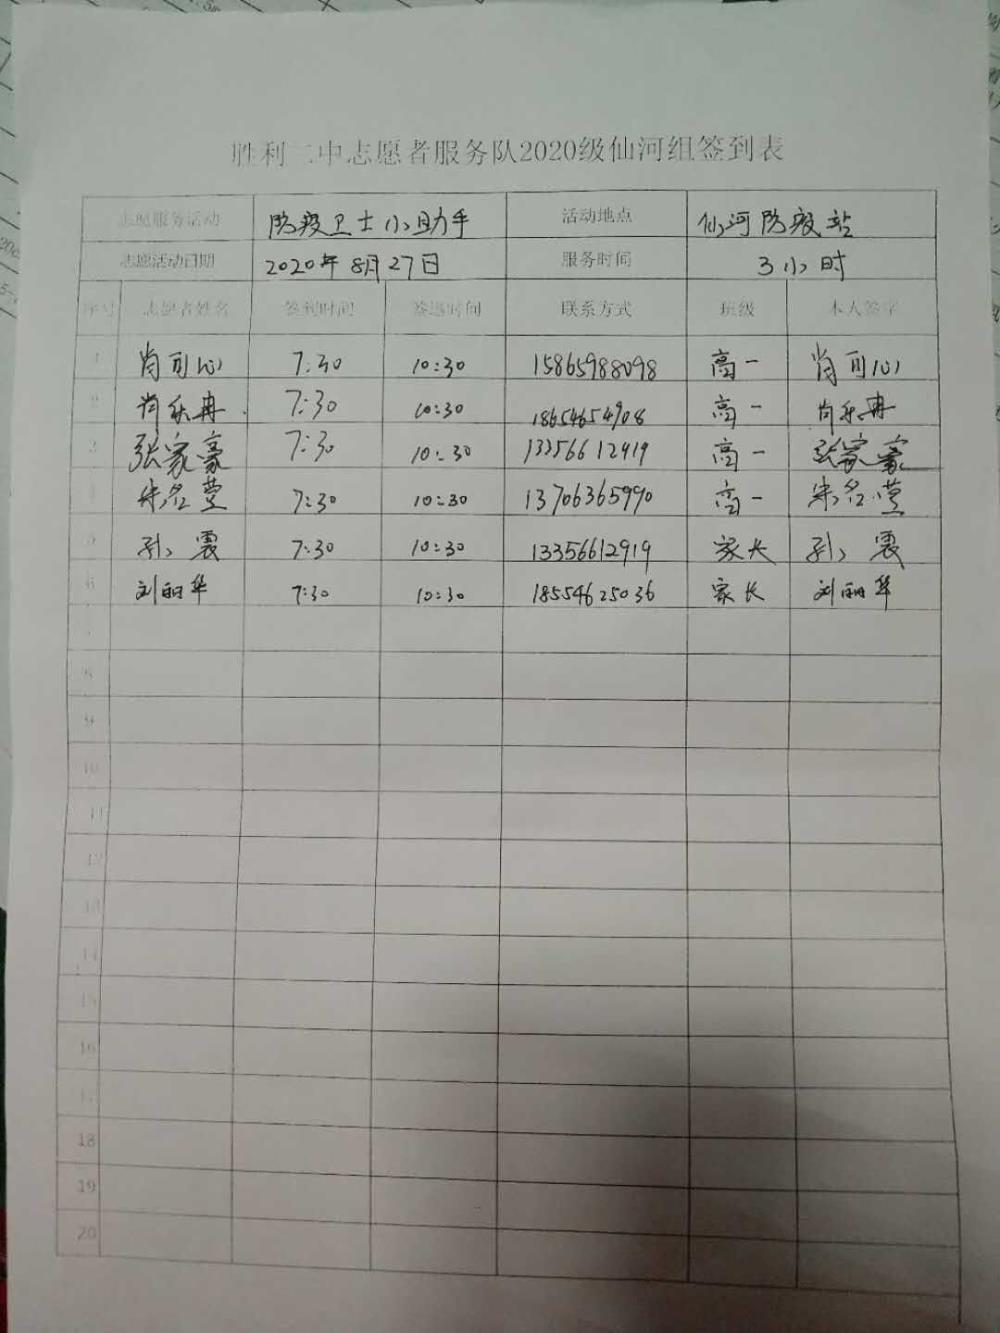 胜利二中志愿者服务队2020级仙河组签到表
志愿服务活动 防疫卫士小助手 活动地点 仙河防疫站
志愿活动日期 2020年8月27日 服务时间 3小时
序号 志愿者姓名 签到时间 签退时间 联系方式 班级 本人签字
1 肖可心 7:30 10:30 15865988098 高一 肖可心
2 肖乐冉 7:30 10:30 18654654908 高一 肖乐冉
3 张家豪 7:30 10:30 13356612919 高一 张家豪
4 朱名莹 7:30 10:30 13706365990 高一 朱名莹
5 孙震 7:30 10:30 13356612919 家长 孙震
6 刘丽华 7:30 10:30 18554625036 家长 刘丽华
7
8
9
10
11
12
13
14
15
16
17
18
19
20